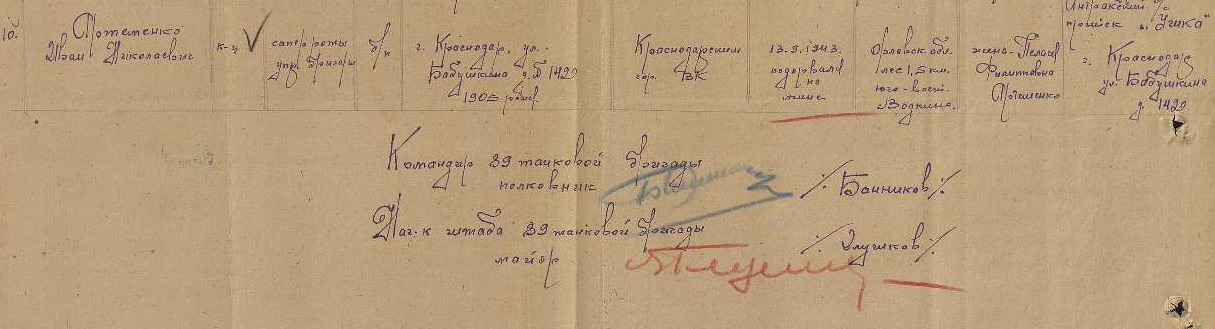 10.
Потетенко
Иван Николаевич
к-ц
сапер роты
упр. бригады
б/п
г. Краснодар, ул.
Бабушкина д. № 1420
1905 рожд.
Краснодарским
гор. ВК
13.9.1943.
подорвался
на
мине
Орловск. обл.
лес 1,5 км.
юго-вост.
жена-Пелагея
Филипповна
прииск "Учика"
г. Краснодар
ул. Бабушкина
д. 1420
Командир 39 танковой бригады
полковник
/. Банников /.
Нач-к штаба 39 танковой бригады
майор
/. Глушков /.